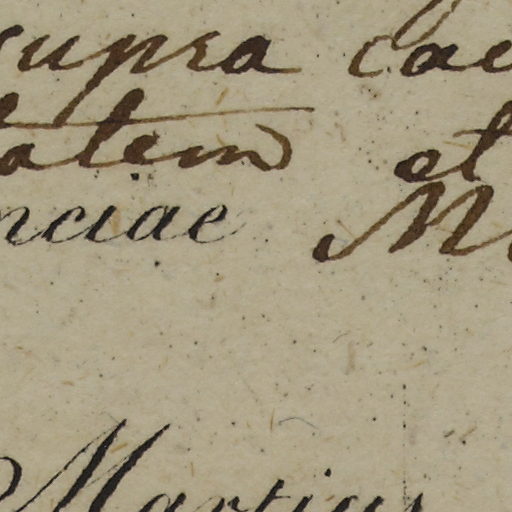 supra cae
tatem et
nciae M
Martius